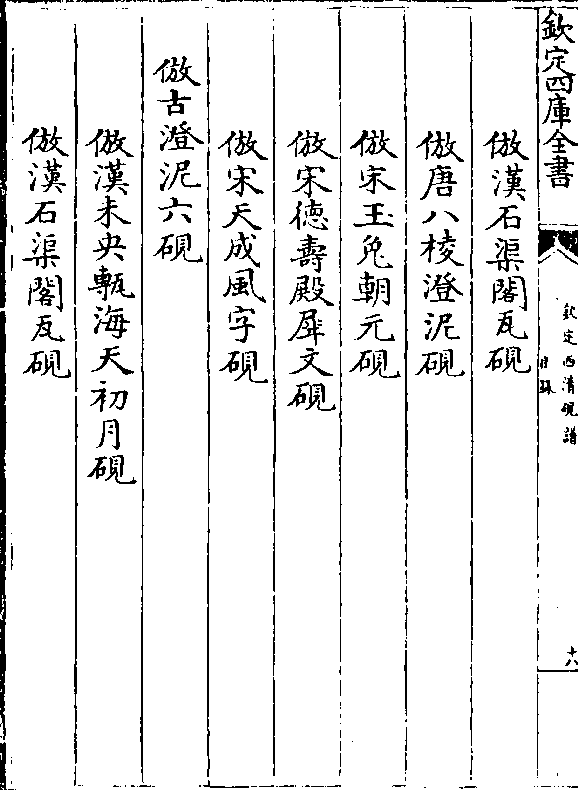 欽定四庫全書
欽定西清硯譜
目錄
十六
倣漢石渠閣瓦硯
倣唐八棱澄泥硯
倣宋玉兔朝元硯
倣宋德壽殿犀文硯
倣宋天成風字硯
倣古澄泥六硯
倣漢未央甎海天初月硯
倣漢石渠閣瓦硯